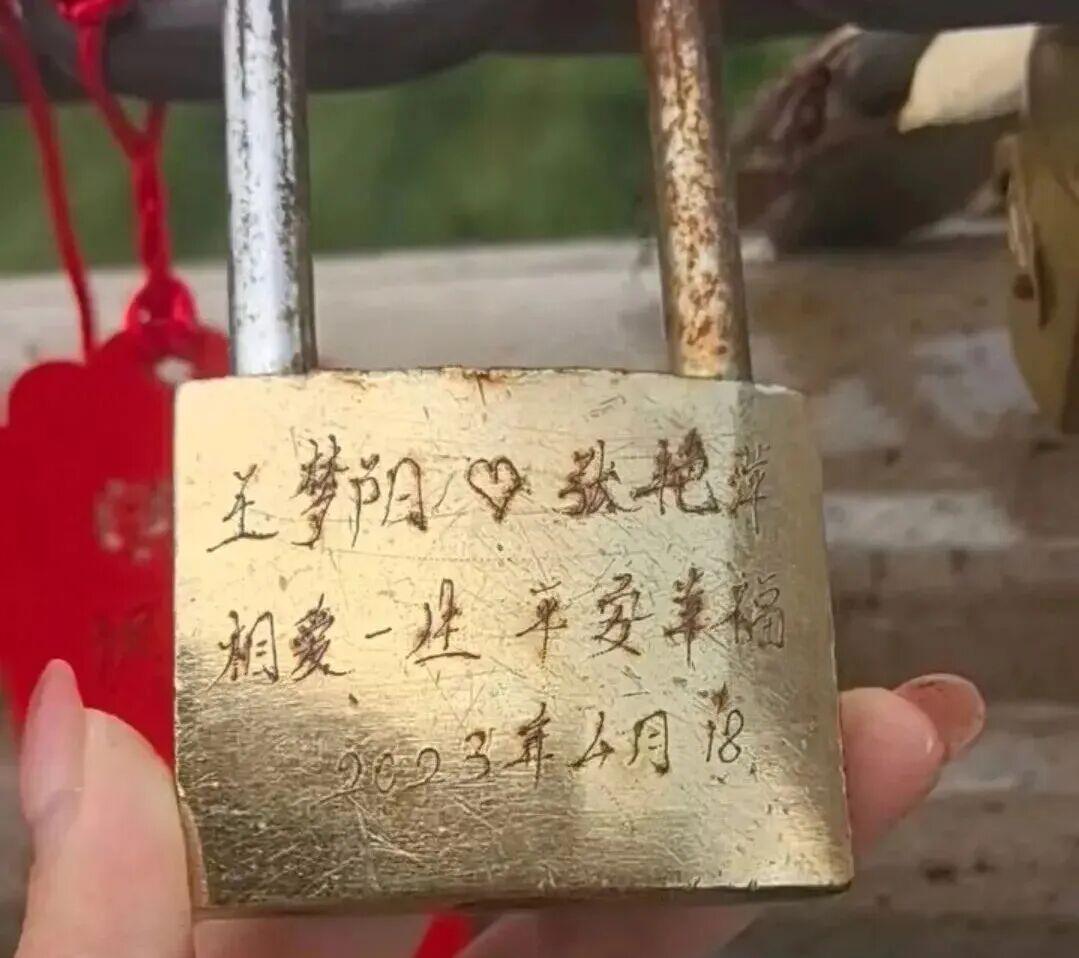 王梦阳♡张艳萍
相爱一生 平安幸福
2023年4月18